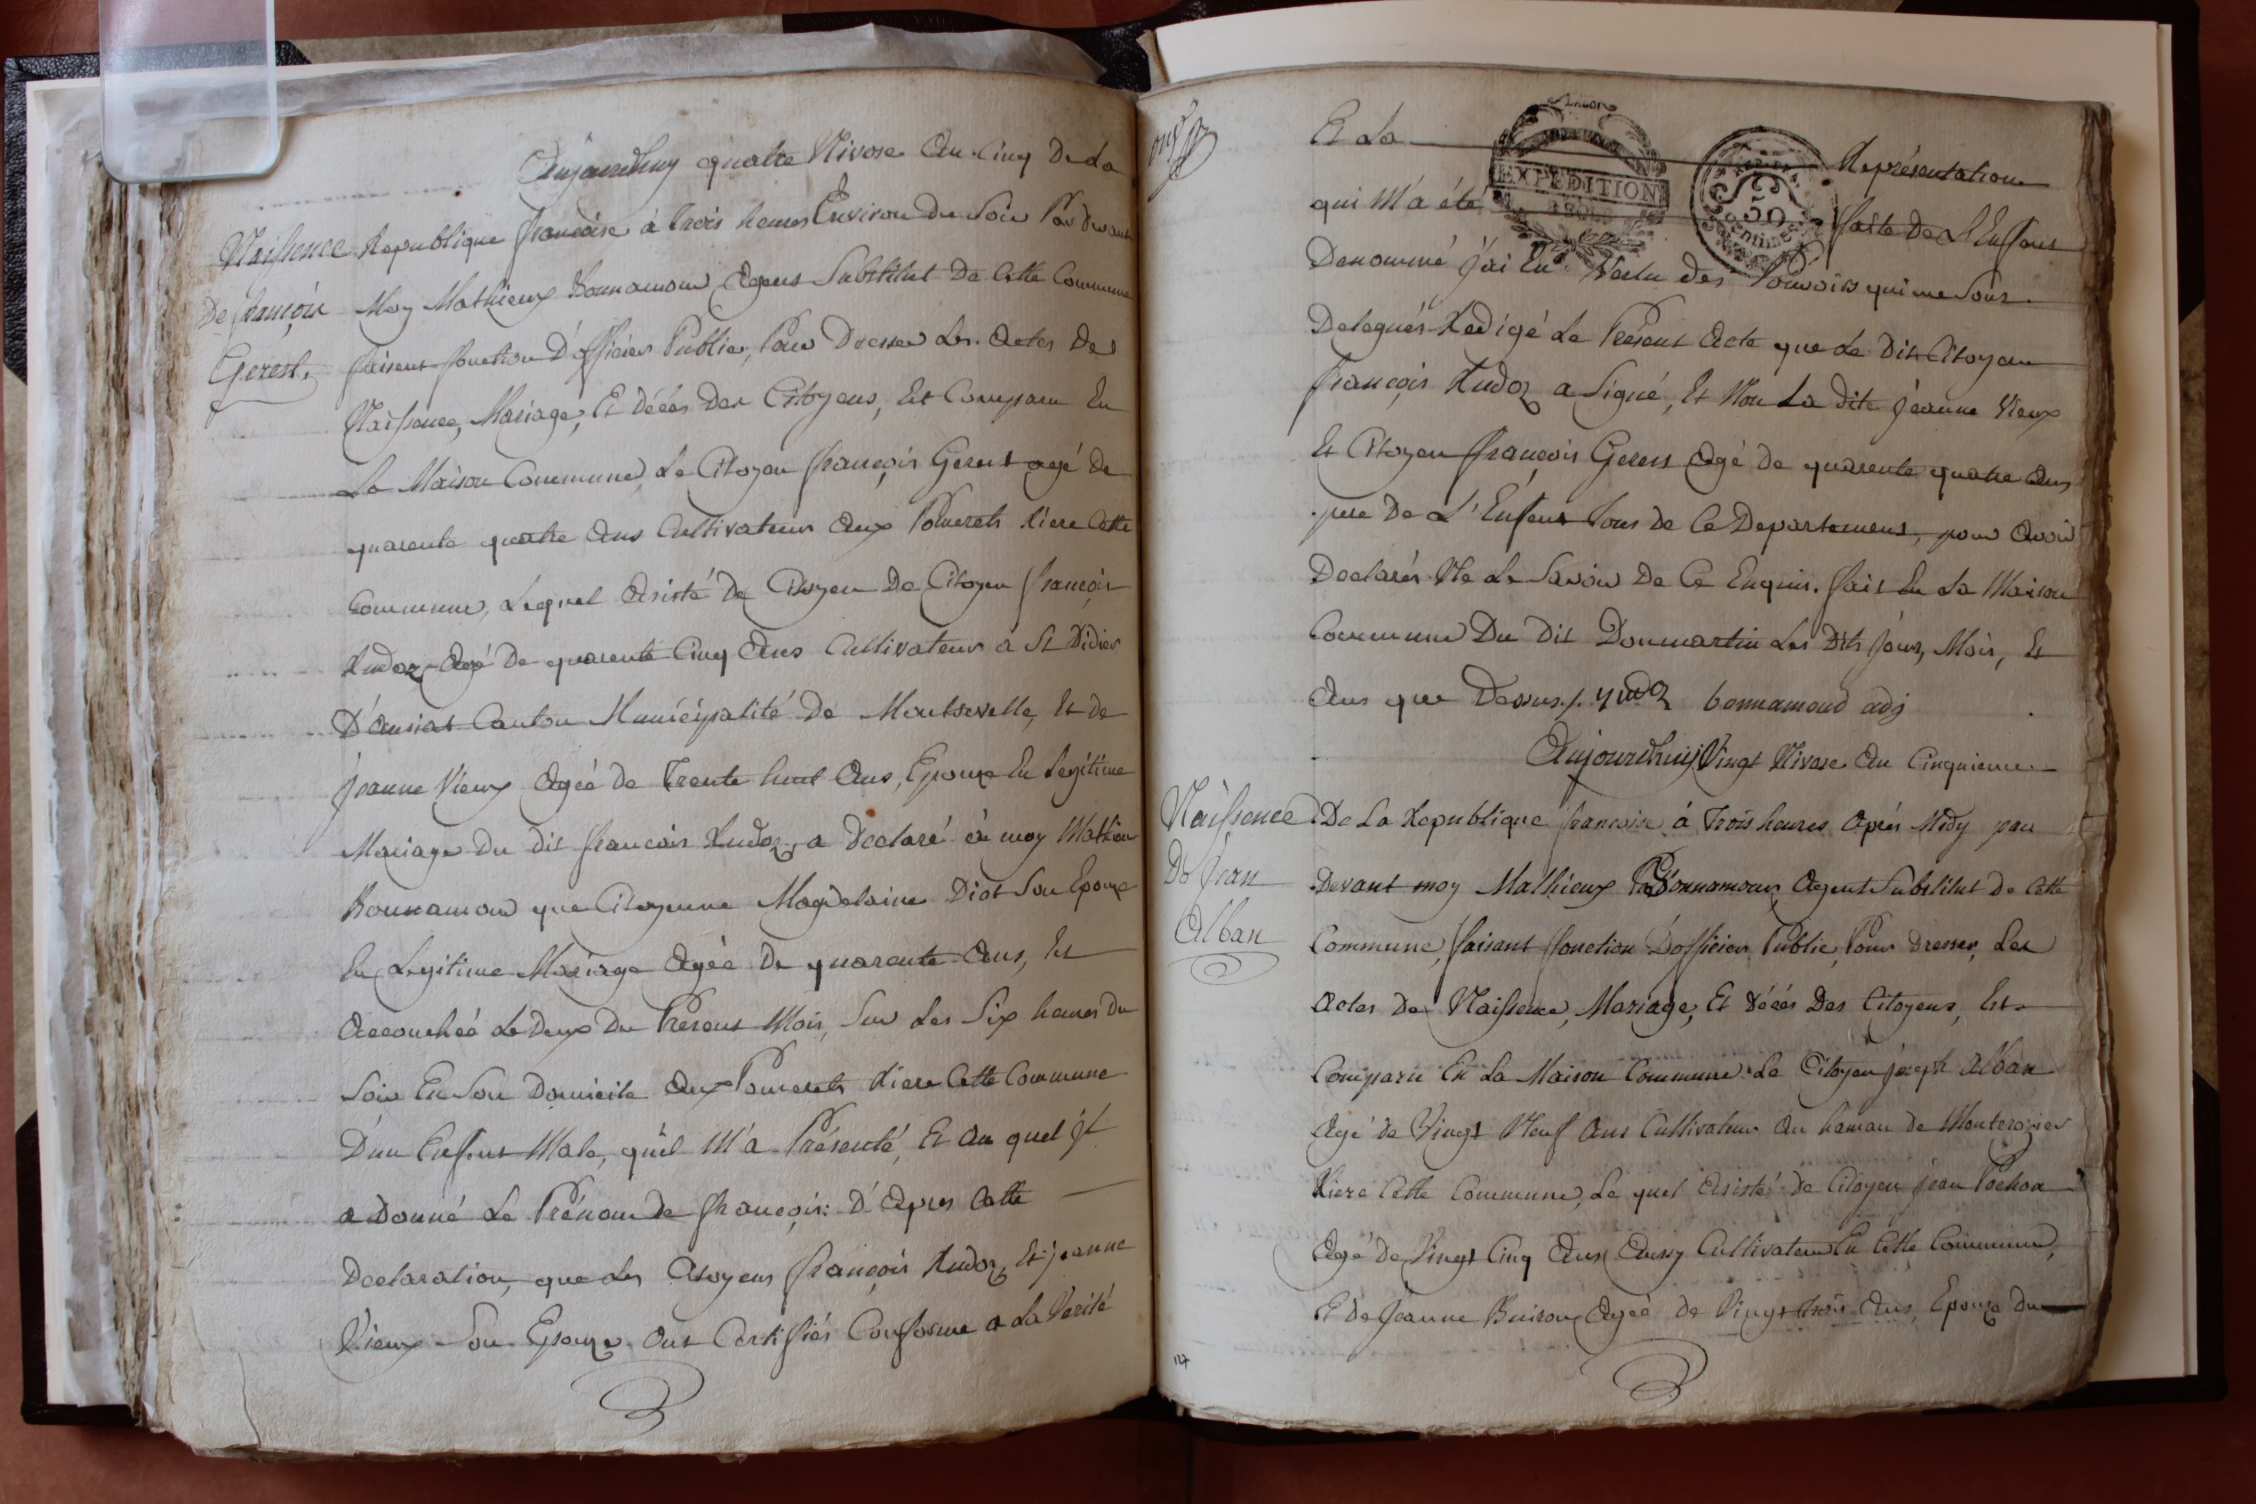 Aujourdhuy quatre Nivose An Cinq De La
Naissence Republique françoise à trois heures Environ du Soir Par Devant
De françois Moy Mathieux Bonnamour Agens Substitut De Cette Commune
Gerest. faisent fonction D'officier Public, Pour Dresser Les Actes De
Naissence, Mariage, Et décés Des Citoyens, Est Comparu En
La Maison Commune, Le Citoyen françois Gerest agé de
quarente quatre Ans Cultivateur Aux Pomerets Riere Cette
Commune, Lequel Asisté De Citoyen De Citoyen françois
Rudoz Agé De quarente Cinq Ans Cultivateur à St Didier
D'aussiat Canton Municipalité de Montrevelle, Et de
Jeanne Vieux Ageé de Trente huit Ans, Epouze En Legitime
Mariage Du dit francois Rudoz, a Declaré à moy Mathieu
Bonnamour que Citoyenne Magdelaine Diot Son Epouze
En Legitime Mariage Ageé De quarente Ans, Est
Accoucheé Le Deux Du Present Mois, Sur Les Six heures du
Soir En Son Domicile Aux Pomerets Riere Cette Commune
D'un Enfent Male, qu'il M'a Présenté, Et Au quel Jl
a Donné Le Prénom de françois: D'Apres Cette
Declaration, que Les Citoyens françois Rudoz, Et Jeanne
Vieux Son Epouze Ont Certifiés Conforme a La Verité
Et La Représentation
EXPEDITION
50
CENTIMES
qui M'a été faite De L'Enfent
Denommé J'ai En Vertu des Pouvoirs qui me Sont
Delegués Redigé Le Présent Acte que Le Dit Citoyen
françois Rudoz a Signé, Et Non La dite Jeanne Vieux
Et Citoyen françois Gerest Agé de quarente quatre Ans
pere De L'Enfent Tous de Ce Departement, pour Avoir
Declarés Ne Le Savoir De Ce Enquis. fait En La Maison
Commune Du Dit Donmartin Les Dits Jour, Mois, Et
Ans que Dessus./. bonnamoud adj
Aujourdhuy Vingt Nivose An Cinquieme
Naissence De La Republique francoise à Trois heures Aprés Midy par
De Jean Devant moy Mathieux Bonnamour Agent Substitut de Cette
Alban Commune, faisant fonction D'officier Public, Pour Dresser, Les
Actes De Naissence, Mariage, Et Décés Des Citoyens, Est
Comparu En La Maison Commune Le Citoyen joseph Alban
Agé de Vingt Neuf Ans Cultivateur Au hamau de Monterozier
Riere Cette Commune, Le quel Asisté de Citoyen Jean Pochon
Agé De Vingt Cinq Ans Aussy Cultivateur En Cette Commune,
Et De Jeanne Buiron Ageé de Vingt trois Ans, Epouze Du
127